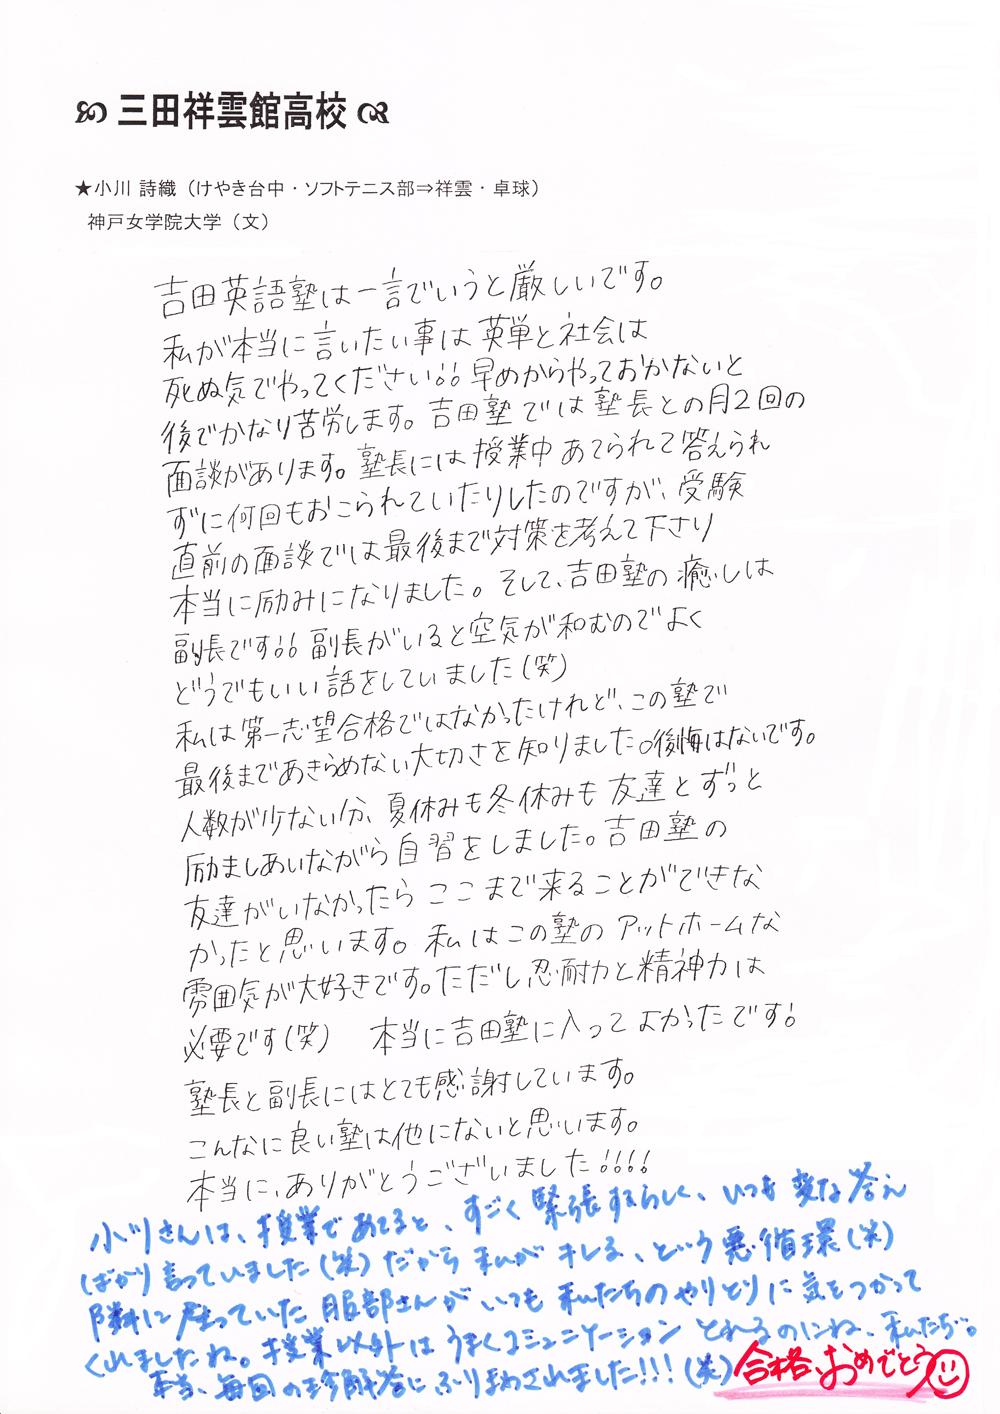 三田祥雲館高校
★小川 詩織（けやき台中・ソフトテニス部⇒祥雲・卓球）
神戸女学院大学（文）
吉田英語塾は一言でいうと厳しいです。
私が本当に言いたい事は英単と社会は
死ぬ気でやってください!! 早めからやっておかないと
後でかなり苦労します。吉田塾では塾長との月2回の
面談があります。塾長には授業中あてられて答えられ
ずに何回もおこられていたりしたのですが、受験
直前の面談では最後まで対策を考えて下さり
本当に励みになりました。そして、吉田塾の癒しは
副長です!! 副長がいると空気が和むのでよく
どうでもいい話をしていました(笑)
私は第一志望合格ではなかったけれど、この塾で
最後まであきらめない大切さを知りました。後悔はないです。
人数が少ない分、夏休みも冬休みも友達とずっと
励ましあいながら自習をしました。吉田塾の
友達がいなかったらここまで来ることができな
かったと思います。私はこの塾のアットホームな
雰囲気が大好きです。ただし忍耐力と精神力は
必要です(笑) 本当に吉田塾に入ってよかったです!
塾長と副長にはとても感謝しています。
こんなに良い塾は他にないと思います。
本当に、ありがとうございました!!!!
小川さんは、授業であてると、すごく緊張するらしく、いつも変な答え
ばかり言っていました(笑)だから私がキレる、という悪循環(笑)
隣に座っていた服部さんがいつも私たちのやりとりに気をつかって
くれましたね。授業以外はうまくコミュニケーションとれるのにね、私たち。
本当、毎回の珍解答にふりまわされました!!!(笑)
合格、おめでとう